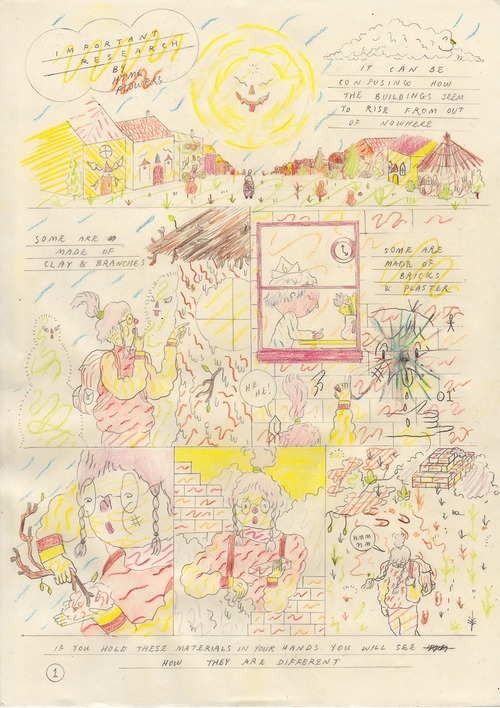 IMPORTANT
RESEARCH
BY
FLOWERS
IT CAN BE
CONFUSING HOW
THE BUILDINGS SEEM
TO RISE FROM OUT
OF NOWHERE
SOME ARE
MADE OF
CLAY & BRANCHES
SOME ARE
MADE OF
BRICKS
& PLASTER
HE,
HE!
01
HMM
MM
IF YOU HOLD THESE MATERIALS IN YOUR HANDS YOU WILL SEE
HOW THEY ARE DIFFERENT
1